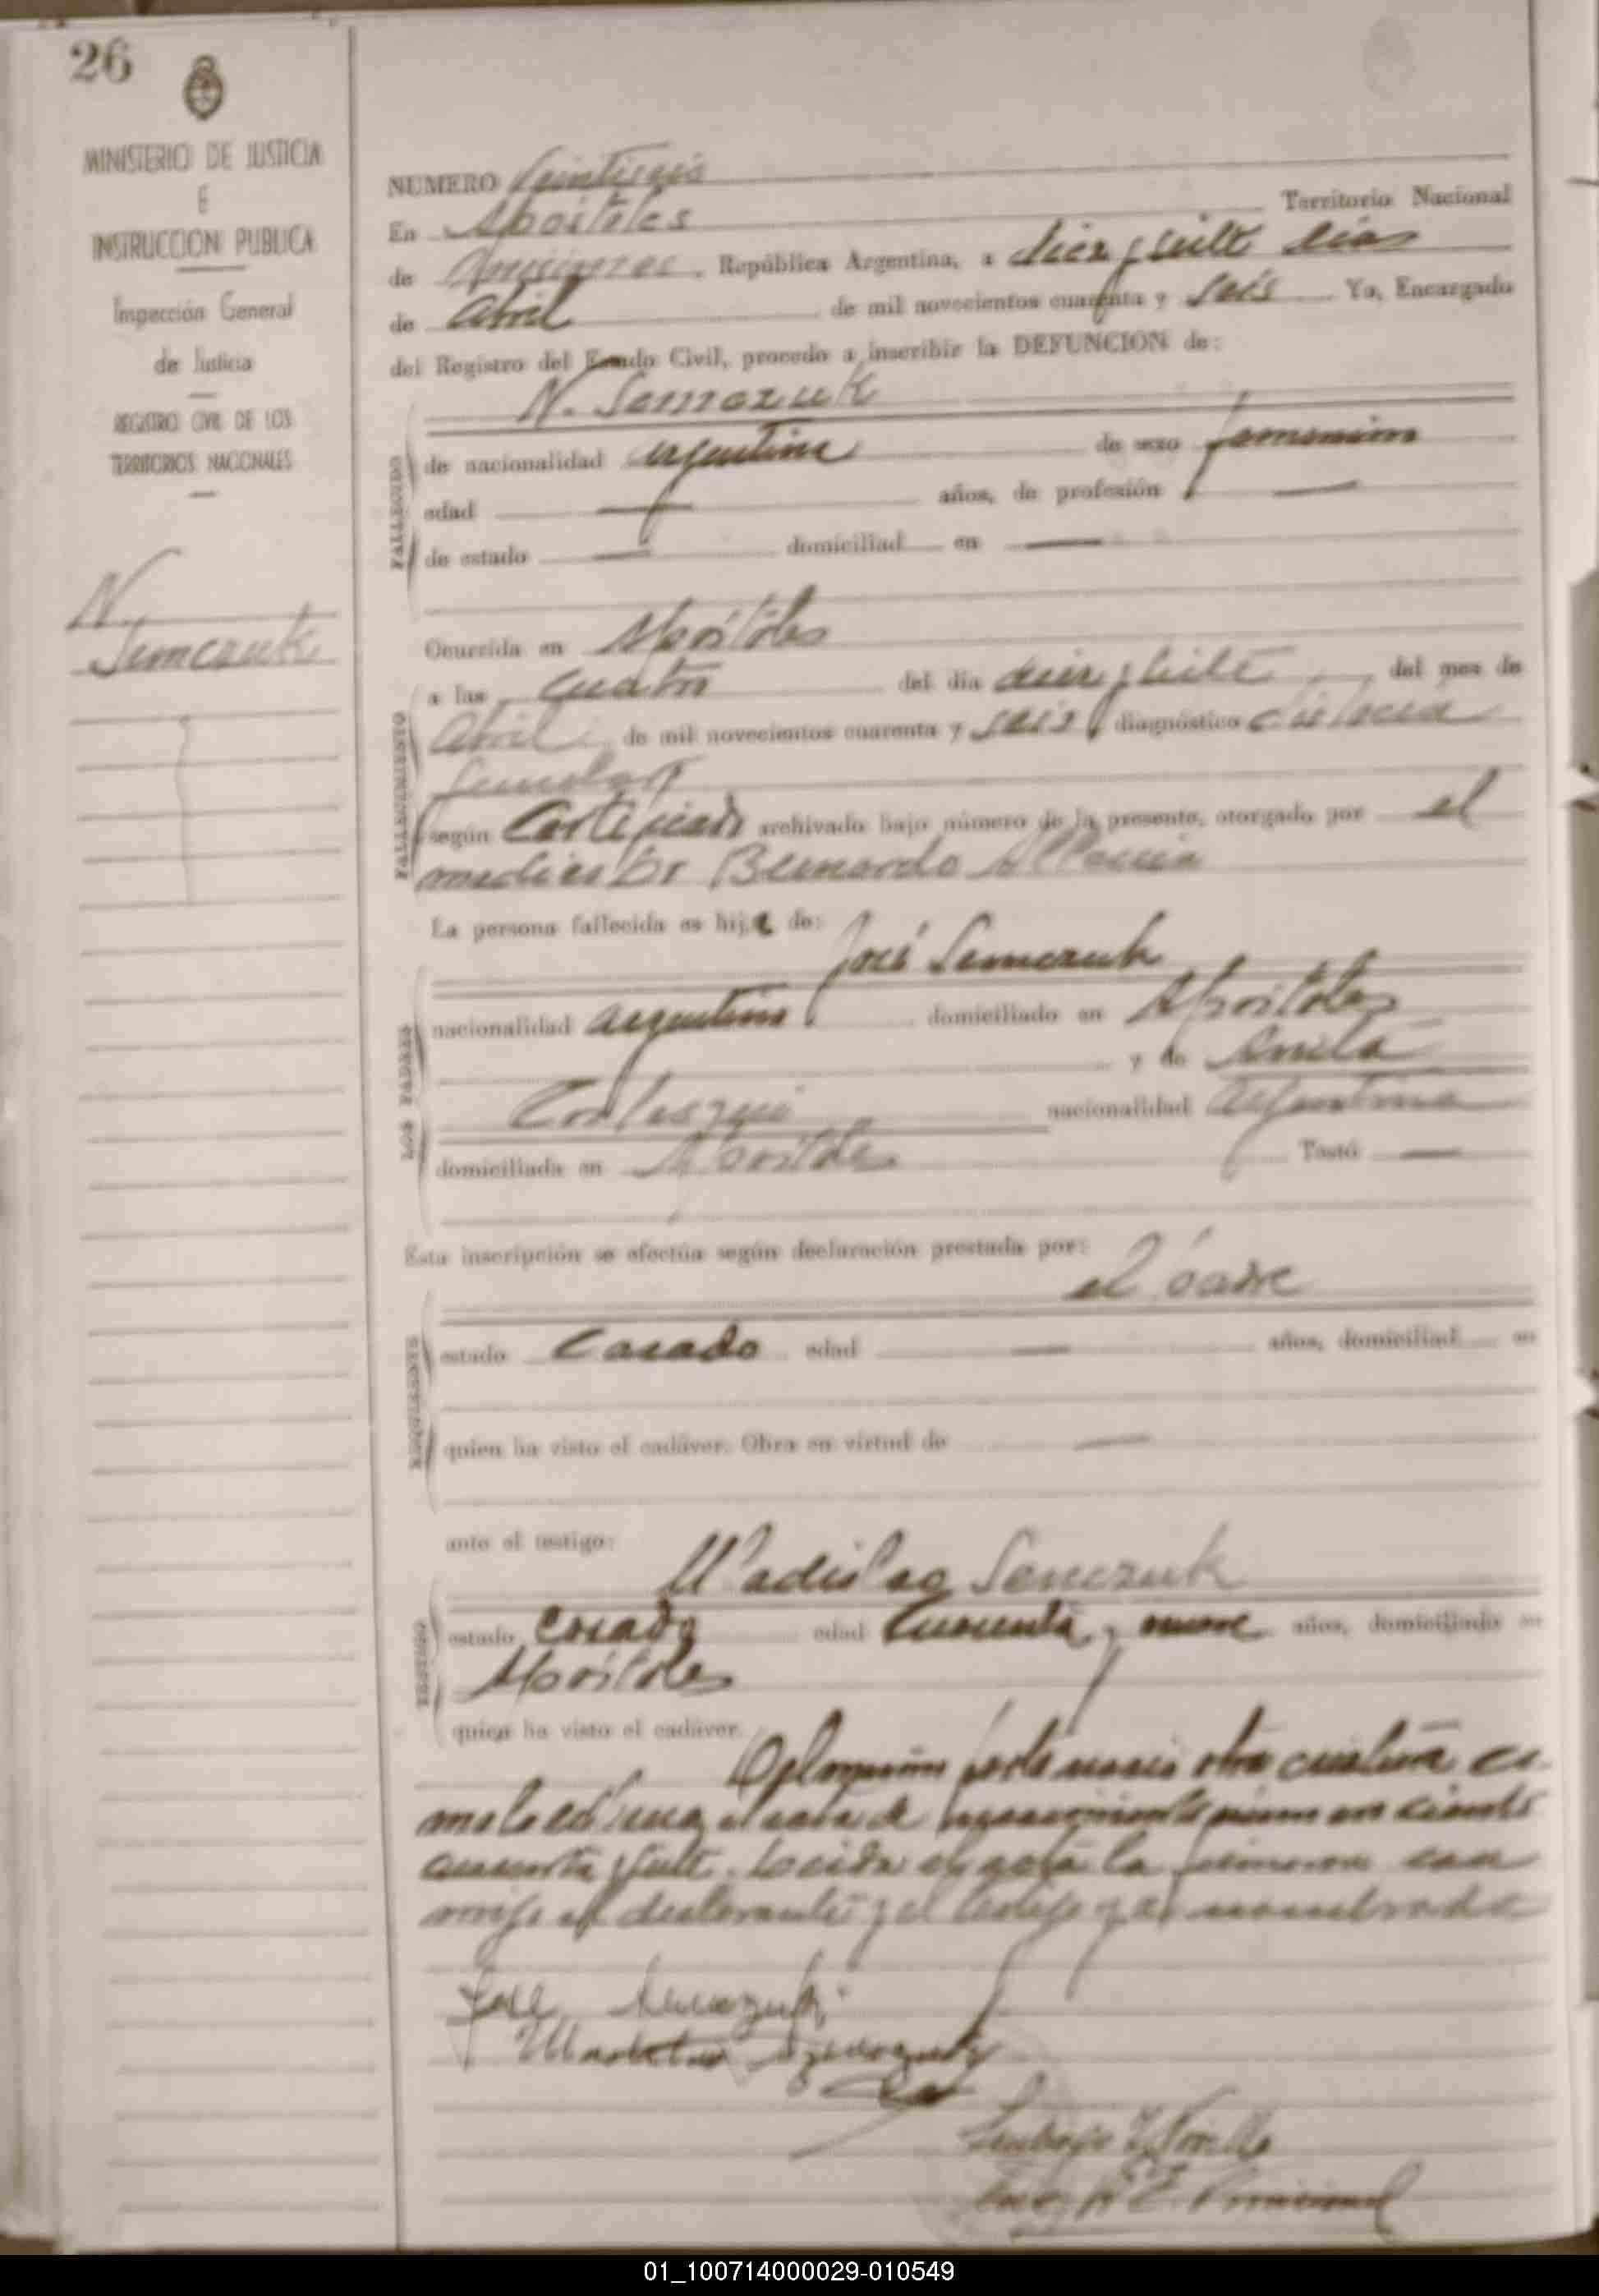 26
MINISTERIO DE JUSTICIA
E
INSTRUCCION PUBLICA
Inspección General
de Justicia
REGISTRO CIVIL DE LOS
TERRITORIOS NACIONALES
N.
Semczuk
NUMERO Veintiseis
En Apóstoles Territorio Nacional
de Misiones, República Argentina, a diez y siete dias
de Abril de mil novecientos cuarenta y seis Yo, Encargado
del Registro del Estado Civil, procedo a inscribir la DEFUNCION de:
N. Semczuk
FALLECIDO
de nacionalidad argentina de sexo femenino
edad — años, de profesión —
de estado — domiciliad en —
FALLECIMIENTO
Ocurrida en Apóstoles
a las cuatro del día diez y siete del mes de
Abril de mil novecientos cuarenta y seis, diagnóstico distocia
según Certificado archivado bajo número de la presente, otorgado por el
medico Dr Bernardo
La persona fallecida es hija de:
José Semczuk
LOS PADRES
nacionalidad argentino domiciliado en Apóstoles
y de
nacionalidad argentina
domiciliada en Apóstoles Testó —
Esta inscripción se efectúa según declaración prestada por:
el padre
REQUIRENTES
estado Casado edad — años, domiciliad en
quien ha visto el cadáver. Obra en virtud de —
ante el testigo:
Wladislao Semczuk
TESTIGO
estado Casado edad Cuarenta y nueve años, domiciliado en
Apóstoles
quien ha visto el cadáver.
otra criatura
el acta de nacimiento ciento
cuarenta y siete. Leida el acta la firmaron con
migo el declarante y el testigo ya nombrado
José
01_100714000029-010549